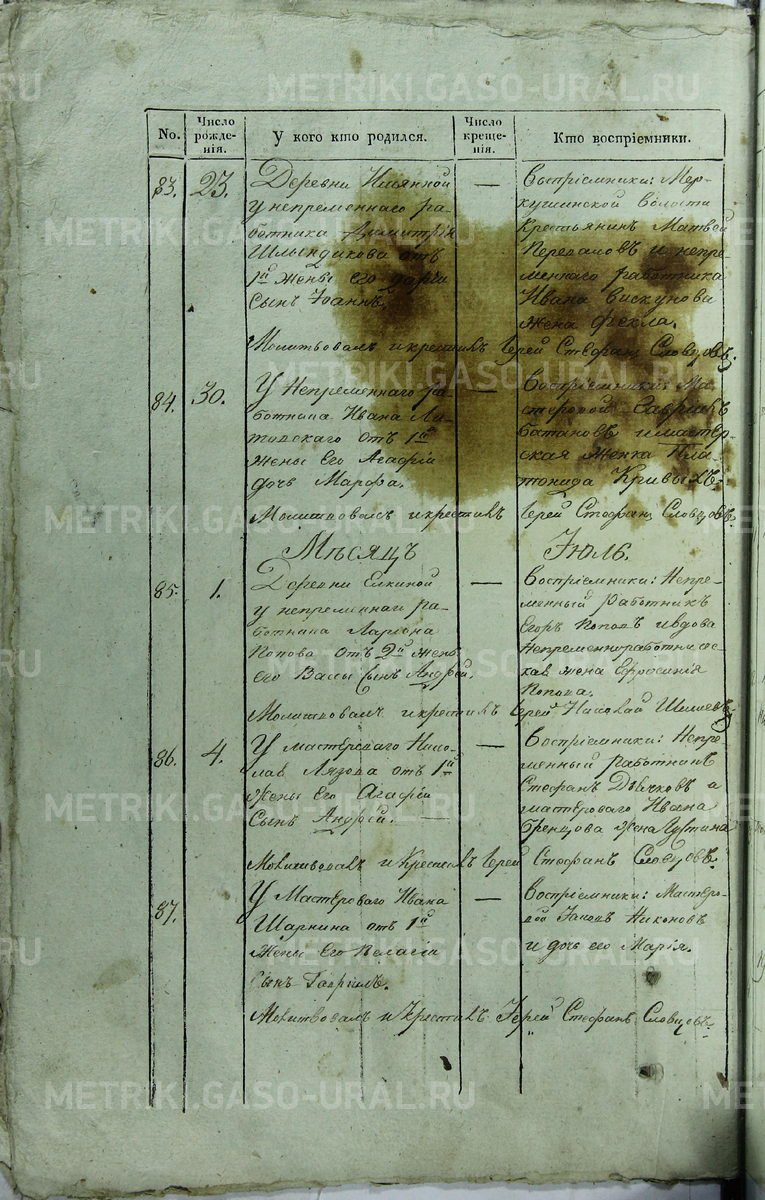 METRIKI.GASO-URAL.RU
No.
Число рожде-нія.
У кого кто родился.
Число креще-нія.
Кто воспріемники.
83. 23. Деревни Ильинной
у непременнаго ра-
ботника Димитрія
Шлындикова отъ
1й жены его Дарьи
сынъ Іоаннъ.
—
Воспріемники: Мер-
кушинской волости
крестьянинъ Матвей
и непре-
меннаго работника
Ивана Вискунова
жена Фекла.
Молитвовалъ и крестилъ Іерей Стефанъ Словцовъ.
84. 30. У Непременнаго ра-
ботника Ивана
отъ 1й
жены Его Агафіи
дочь Марфа.
—
Воспріемники: Ма-
стеровой Гавриилъ
Батановъ и мастер-
ская женка Пла-
тонида Кривыхъ
Молитвовалъ и крестилъ Іерей Стефанъ Словцовъ.
Мѣсяцъ Іюль.
85. 1. Деревни Елкиной
у непременнаго ра-
ботника Лариона
Попова отъ 2й жены
его Вассы сынъ Андрей.
—
Воспріемники: Непре-
менный работникъ
Егоръ Поповъ и вдова
Непременноработничес-
кая жена Ефросинія
Попова.
Молитвовалъ и крестилъ Іерей Николай
86. 4. У мастероваго Нико-
лая Лязова отъ 1й
жены Его Агафіи
Сынъ Андрей. —
—
Воспріемники: Непре-
менный работникъ
Стефанъ а
мастероваго Ивана
жена Устина
Молитвовалъ и Крестилъ Іерей Стефанъ Словцовъ.
87. У Мастероваго Ивана
Шарнина отъ 1й
жены Его Пелагіи
Сынъ Гавріилъ.
—
Воспріемники: Мастеро-
вой Никоновъ
и дочь его Марія.
Молитвовалъ и Крестилъ Іерей Стефанъ Словцовъ.